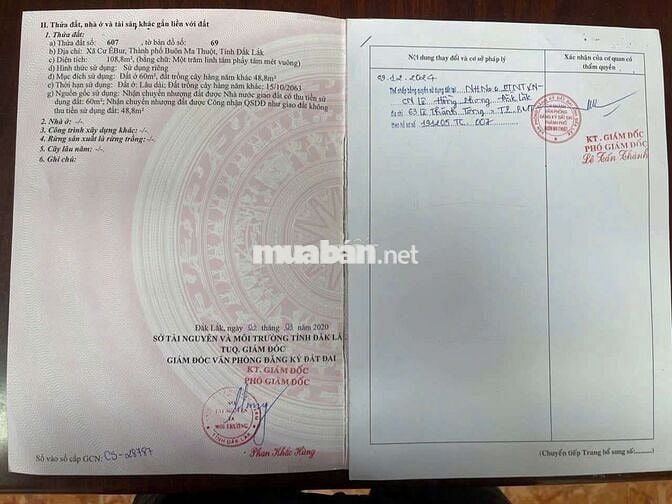 II. Thửa đất, nhà ở và tài sản khác gắn liền với đất
1. Thửa đất:
a) Thửa đất số: 607, tờ bản đồ số: 69
b) Địa chỉ: Xã Cư ÊBur, Thành phố Buôn Ma Thuột, Tỉnh Đắk Lắk
c) Diện tích: 108,8m², (bằng chữ: Một trăm linh tám phẩy tám mét vuông)
d) Hình thức sử dụng: Sử dụng riêng
đ) Mục đích sử dụng: Đất ở 60m², đất trồng cây hàng năm khác 48,8m²
e) Thời hạn sử dụng: Đất ở: Lâu dài; Đất trồng cây hàng năm khác: 15/10/2063
g) Nguồn gốc sử dụng: Nhận chuyển nhượng đất được Nhà nước giao đất có thu tiền sử
dụng đất: 60m²; Nhận chuyển nhượng đất được Công nhận QSDĐ như giao đất không
thu tiền sử dụng đất: 48,8m²
2. Nhà ở: -/-.
3. Công trình xây dựng khác: -/-.
4. Rừng sản xuất là rừng trồng: -/-.
5. Cây lâu năm: -/-.
6. Ghi chú:
muaban.net
Đắk Lắk, ngày 02 tháng 03 năm 2020
SỞ TÀI NGUYÊN VÀ MÔI TRƯỜNG TỈNH ĐẮK LẮK
TUQ. GIÁM ĐỐC
GIÁM ĐỐC VĂN PHÒNG ĐĂNG KÝ ĐẤT ĐAI
KT. GIÁM ĐỐC
PHÓ GIÁM ĐỐC
SỞ
TÀI NGUYÊN
VÀ
MÔI TRƯỜNG
TỈNH ĐẮK LẮK
Phan Khắc Hùng
Số vào sổ cấp GCN: CS-28787
Nội dung thay đổi và cơ sở pháp lý
Xác nhận của cơ quan có
thẩm quyền
Thế chấp bằng quyền sử dụng đất tại NHNo & PTNT VN-
CN Lê Hồng Phong - Đắk Lắk
63 Lê Thánh Tông - TP. BMT
007
VĂN PHÒNG
ĐĂNG KÝ ĐẤT ĐAI
THÀNH PHỐ
BUÔN MA THUỘT
KT. GIÁM ĐỐC
PHÓ GIÁM ĐỐC
Lê Tấn Thành
(Chuyển tiếp Trang bổ sung số:.......)